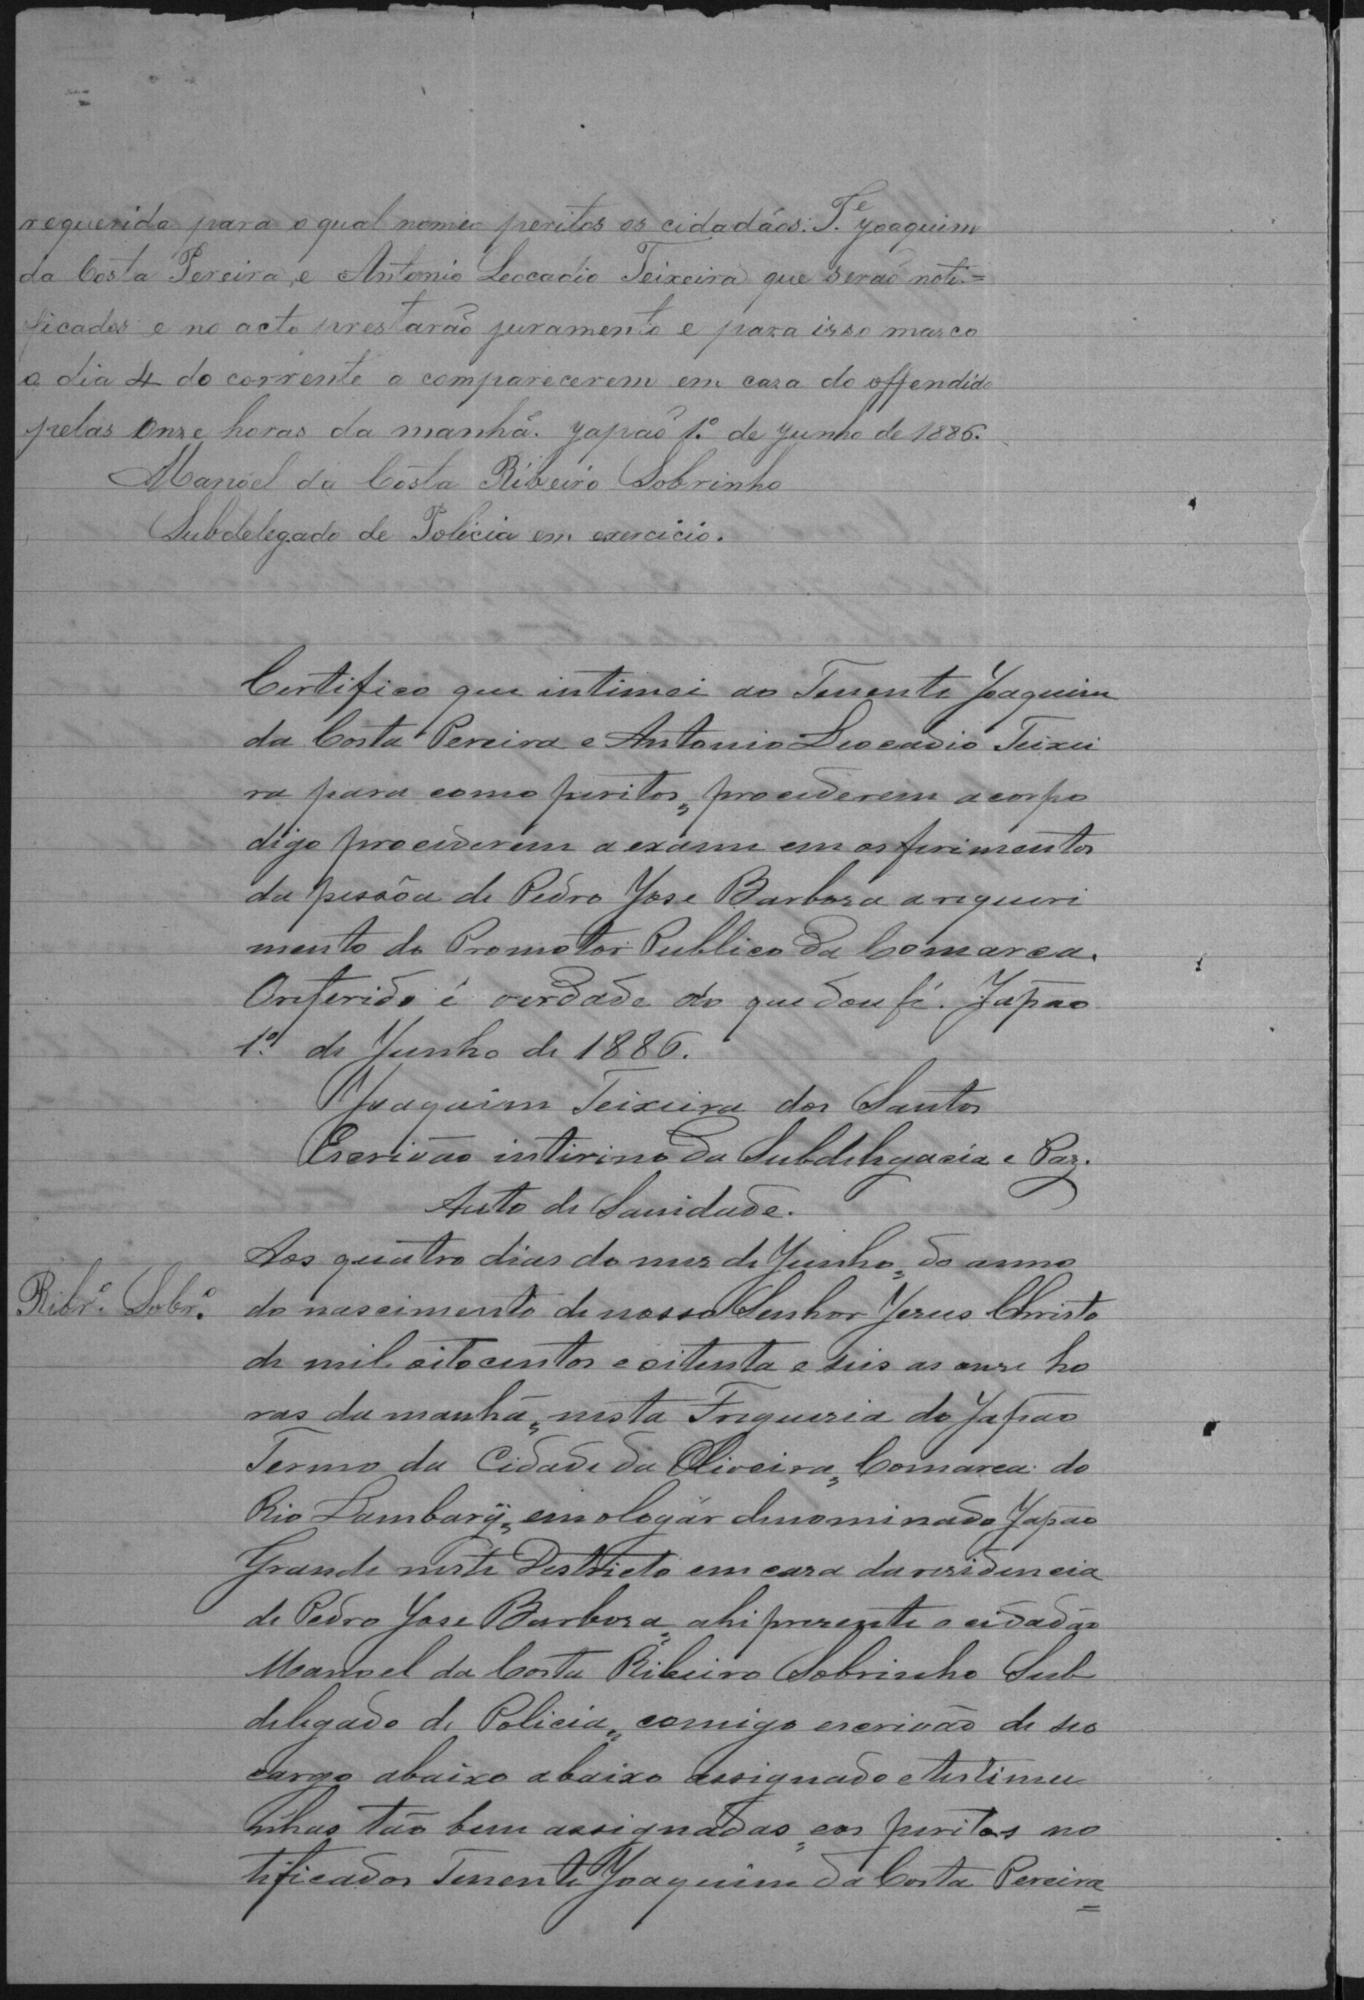 requerido para o qual nomeo peritos os cidadãos: Te. Joaquim
da Costa Pereira, e Antonio Leocadio Teixeira que serão noti=
ficados e no acto prestarão juramento e para isso marco
o dia 4 do corrente a comparecerem em caza do offendido
pelas Onze horas da manhã. Japão 1.º de Junho de 1886.
Manoel da Costa Ribeiro Sobrinho
Subdelegado de Policia em exercicio.
Certifico que intimei ao Tenente Joaquim
da Costa Pereira e Antonio Leocadio Teixei
ra para como peritos, procederem a corpo
digo procederem a exame em os ferimentos
da pessôa de Pedro Jose Barboza a requeri
mento do Promotor Publico da Comarca.
Oreferido é verdade do que dou fé. Japão
1.º de Junho de 1886.
Joaquim Teixeira dos Santos
Escrivão intirino da Subdelegacia e Paz.
Auto de Sanidade.
Aos quatro dias do mez de Junho, do anno
Ribr.º Sobr.º do nascimento de nosso Senhor Jezus Christo
de mil oitocentos e oitenta e seis as onze ho
ras da manhã, nesta Freguezia do Japão
Termo da Cidade da Oliveira, Comarca do
Rio Lambarÿ, em o logar denominado Japão
Grande neste Destricto em caza da rezidencia
de Pedro Jose Barboza, ahi prezente o cidadão
Manoel da Costa Ribeiro Sobrinho Sub
delegado de Policia, comigo escrivão de seo
cargo abaixo abaixo assignado e testimu
nhas tão bem assignadas, eos peritos no
tificados Tenente Joaquim da Costa Pereira=